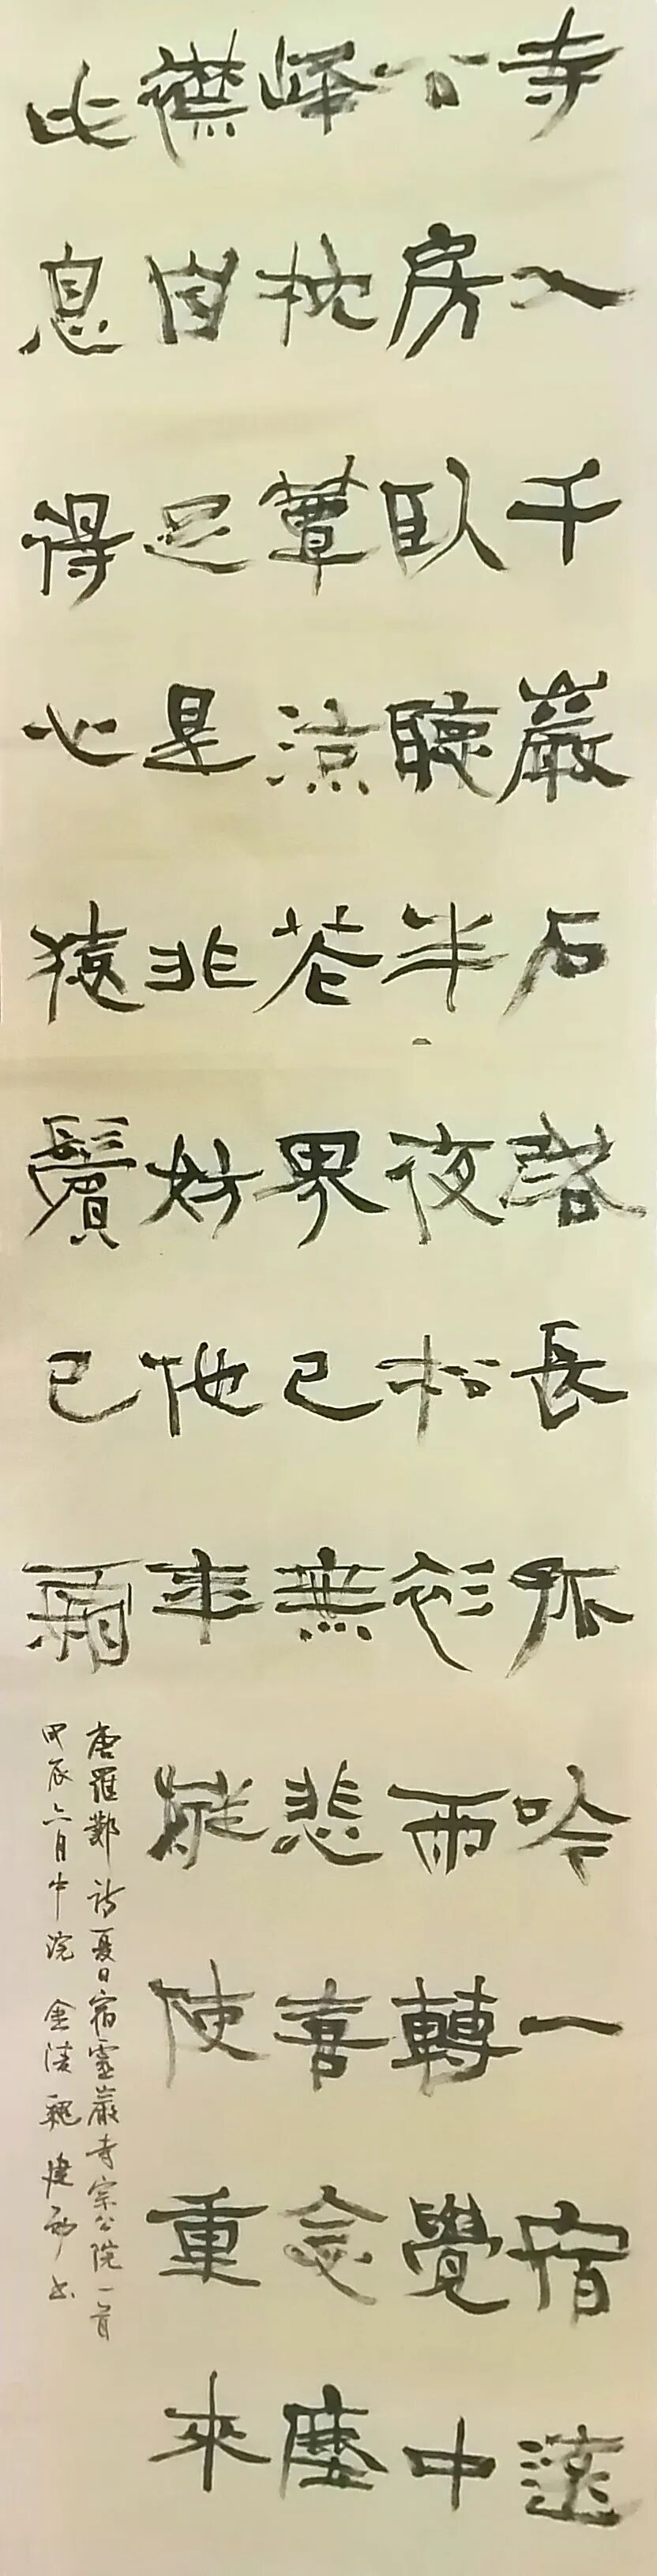 寺入千巖石路長孤吟一宿遠
公房臥聽半夜松衫雨轉覺中
峰枕簟涼花界已無悲喜念塵
襟自足是非妨他年縱使重來
此息得心猿鬢已霜
唐羅鄴詩夏日宿靈巖寺宗公院一首
甲辰六月中浣 金陵 魏建 书